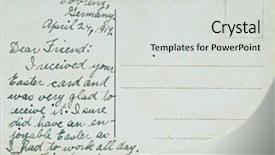 Germany.
April 24, 1919.
Dear Friend:
I received your
Easter card and
was very glad to
receive it. I sure
did have an en-
joyable Easter as
I had to work all day.
Crystal
Templates for PowerPoint